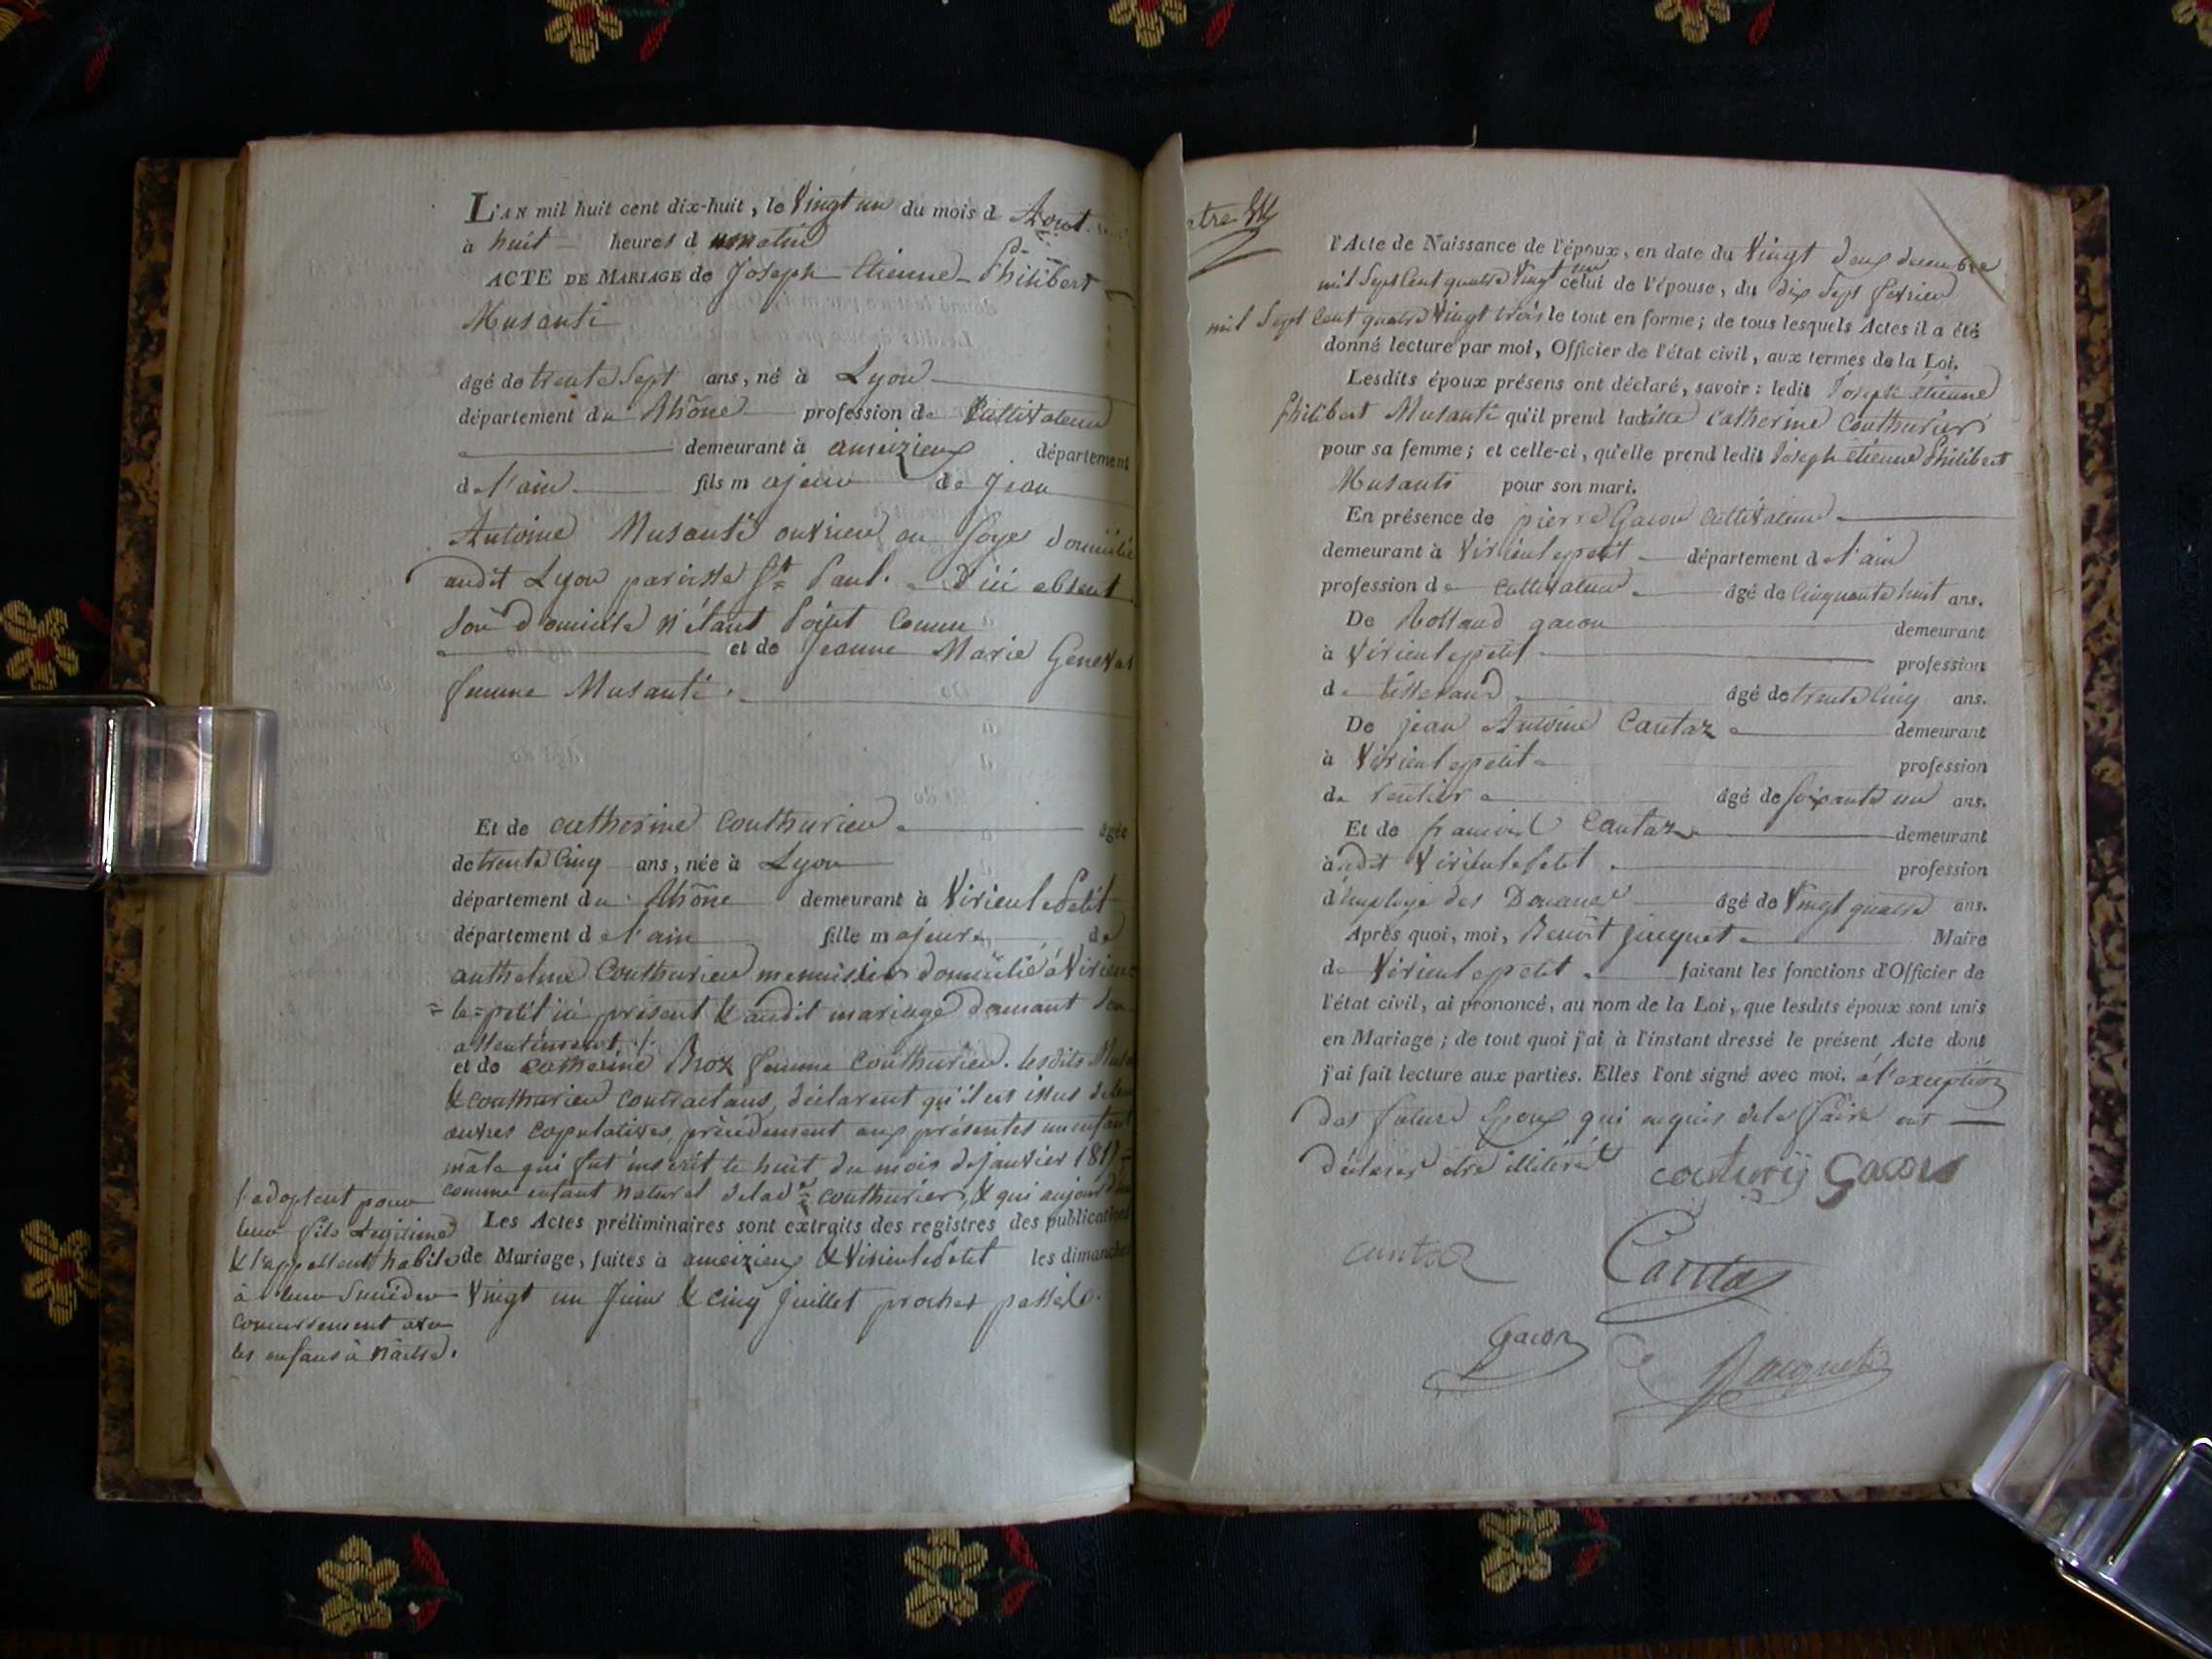 L'AN mil huit cent dix-huit, le Vingt un du mois d Aout
à huit heures d u matin
ACTE DE MARIAGE de Joseph Etienne Philibert
Musanti
âgé de trente Sept ans, né à Lyon
département du Rhône profession de Cultivateur
demeurant à ameizieux département
de l'ain fils majeur de Jean
Antoine Musanti ouvrier en Soye domicilié
audit Lyon paroisse St Paul. d'ici absent
Son domicile n'étant point connu
et de Jeanne Marie Genevat
femme Musanti.
Et de catherine Couthurier âgée
de trente Cinq ans, née à Lyon
département du Rhône demeurant à Virieulepetit
département de l'ain fille majeure de
anthelme Couthurier menuisier domicilié à Virieu
=le=petit ici présent & audit mariage donnant Son
assentiment ./.
et de catherine Broz femme Couthurier. lesdits Musanti
& Couthurier contractans, déclarent qu'il est issus de leur
œuvres copulatives, précédemment aux présentes un enfant
mâle qui fut inscrit le huit du mois de janvier 181
comme enfant naturel de lade couthurier, & qui aujourd'hui
l'adoptent pour
leur fils Legitime
& l'appellent habile
à leur Succéder
concurremment avec
les enfans à naitre.
Les Actes préliminaires sont extraits des registres des publications
de Mariage, faites à ameizieux & Virieulepetit les dimanches
Vingt un Juin & cinq Juillet proches passés.
l'Acte de Naissance de l'époux, en date du Vingt deux decembre
mil Sept Cent quatre Vingt un celui de l'épouse, du dix Sept fevrier
mil Sept Cent quatre Vingt trois le tout en forme; de tous lesquels Actes il a été
donné lecture par moi, Officier de l'état civil, aux termes de la Loi.
Lesdits époux présens ont déclaré, savoir: ledit Joseph étienne
Philibert Musanti qu'il prend ladite Catherine Couthurier
pour sa femme; et celle-ci, qu'elle prend ledit Joseph étienne Philibert
Musanti pour son mari.
En présence de pierre Gacon Cultivateur
demeurant à Virieulepetit département de l'ain
profession de Cultivateur âgé de Cinquante huit ans.
De Rolland gacon demeurant
à Virieulepetit profession
de tisserand âgé de trente Cinq ans.
De jean Antoine Cantaz demeurant
à Virieulepetit profession
de rentier âgé de Soixante un ans.
Et de francois Cantaz demeurant
audit Virieulepetit profession
d'employé des Douanes âgé de Vingt quatre ans.
Après quoi, moi, Benoit Jacquet Maire
de Virieulepetit faisant les fonctions d'Officier de
l'état civil, ai prononcé, au nom de la Loi, que lesdits époux sont unis
en Mariage; de tout quoi j'ai à l'instant dressé le présent Acte dont
j'ai fait lecture aux parties. Elles l'ont signé avec moi. à l'exception
des future Epoux qui requis de le faire ont
déclarés etre illitéré
Gacon
Cantaz
Gacon
Jacquet